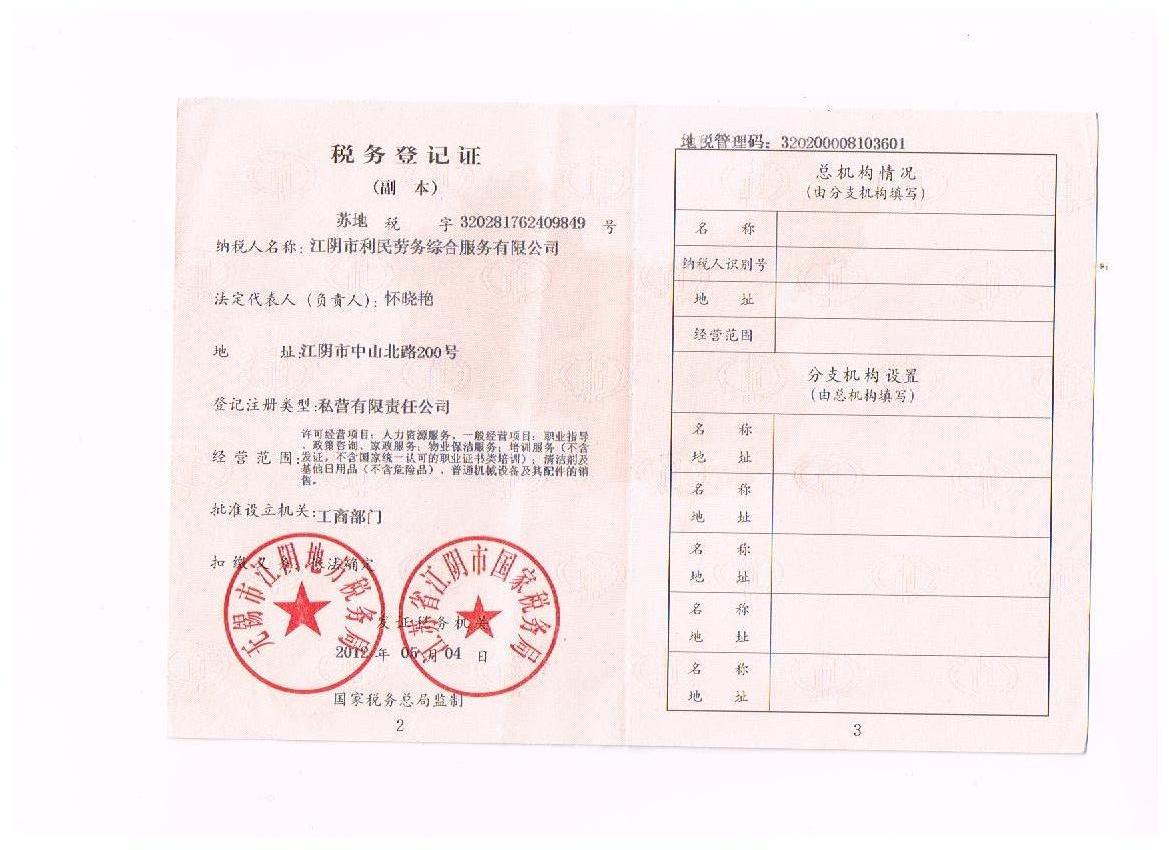 税务登记证
(副 本)
苏地 税 字 320281762409849 号
纳税人名称:江阴市利民劳务综合服务有限公司
法定代表人(负责人):怀晓艳
地 址:江阴市中山北路200号
登记注册类型:私营有限责任公司
经营范围:
许可经营项目:人力资源服务。一般经营项目:职业指导
、政策咨询、家政服务;物业保洁服务;培训服务(不含
发证,不含国家统一认可的职业证书类培训);清洁剂及
其他日用品(不含危险品)、普通机械设备及其配件的销
售。
批准设立机关:工商部门
扣缴义务 依法确定
无锡市江阴地方税务局
江苏省江阴市国家税务局
发证税务机关
2012 年 05 月 04 日
国家税务总局监制
2
地税管理码:320200008103601
总机构情况
(由分支机构填写)
名 称
纳税人识别号
地 址
经营范围
分支机构设置
(由总机构填写)
名 称
地 址
名 称
地 址
名 称
地 址
名 称
地 址
名 称
地 址
3